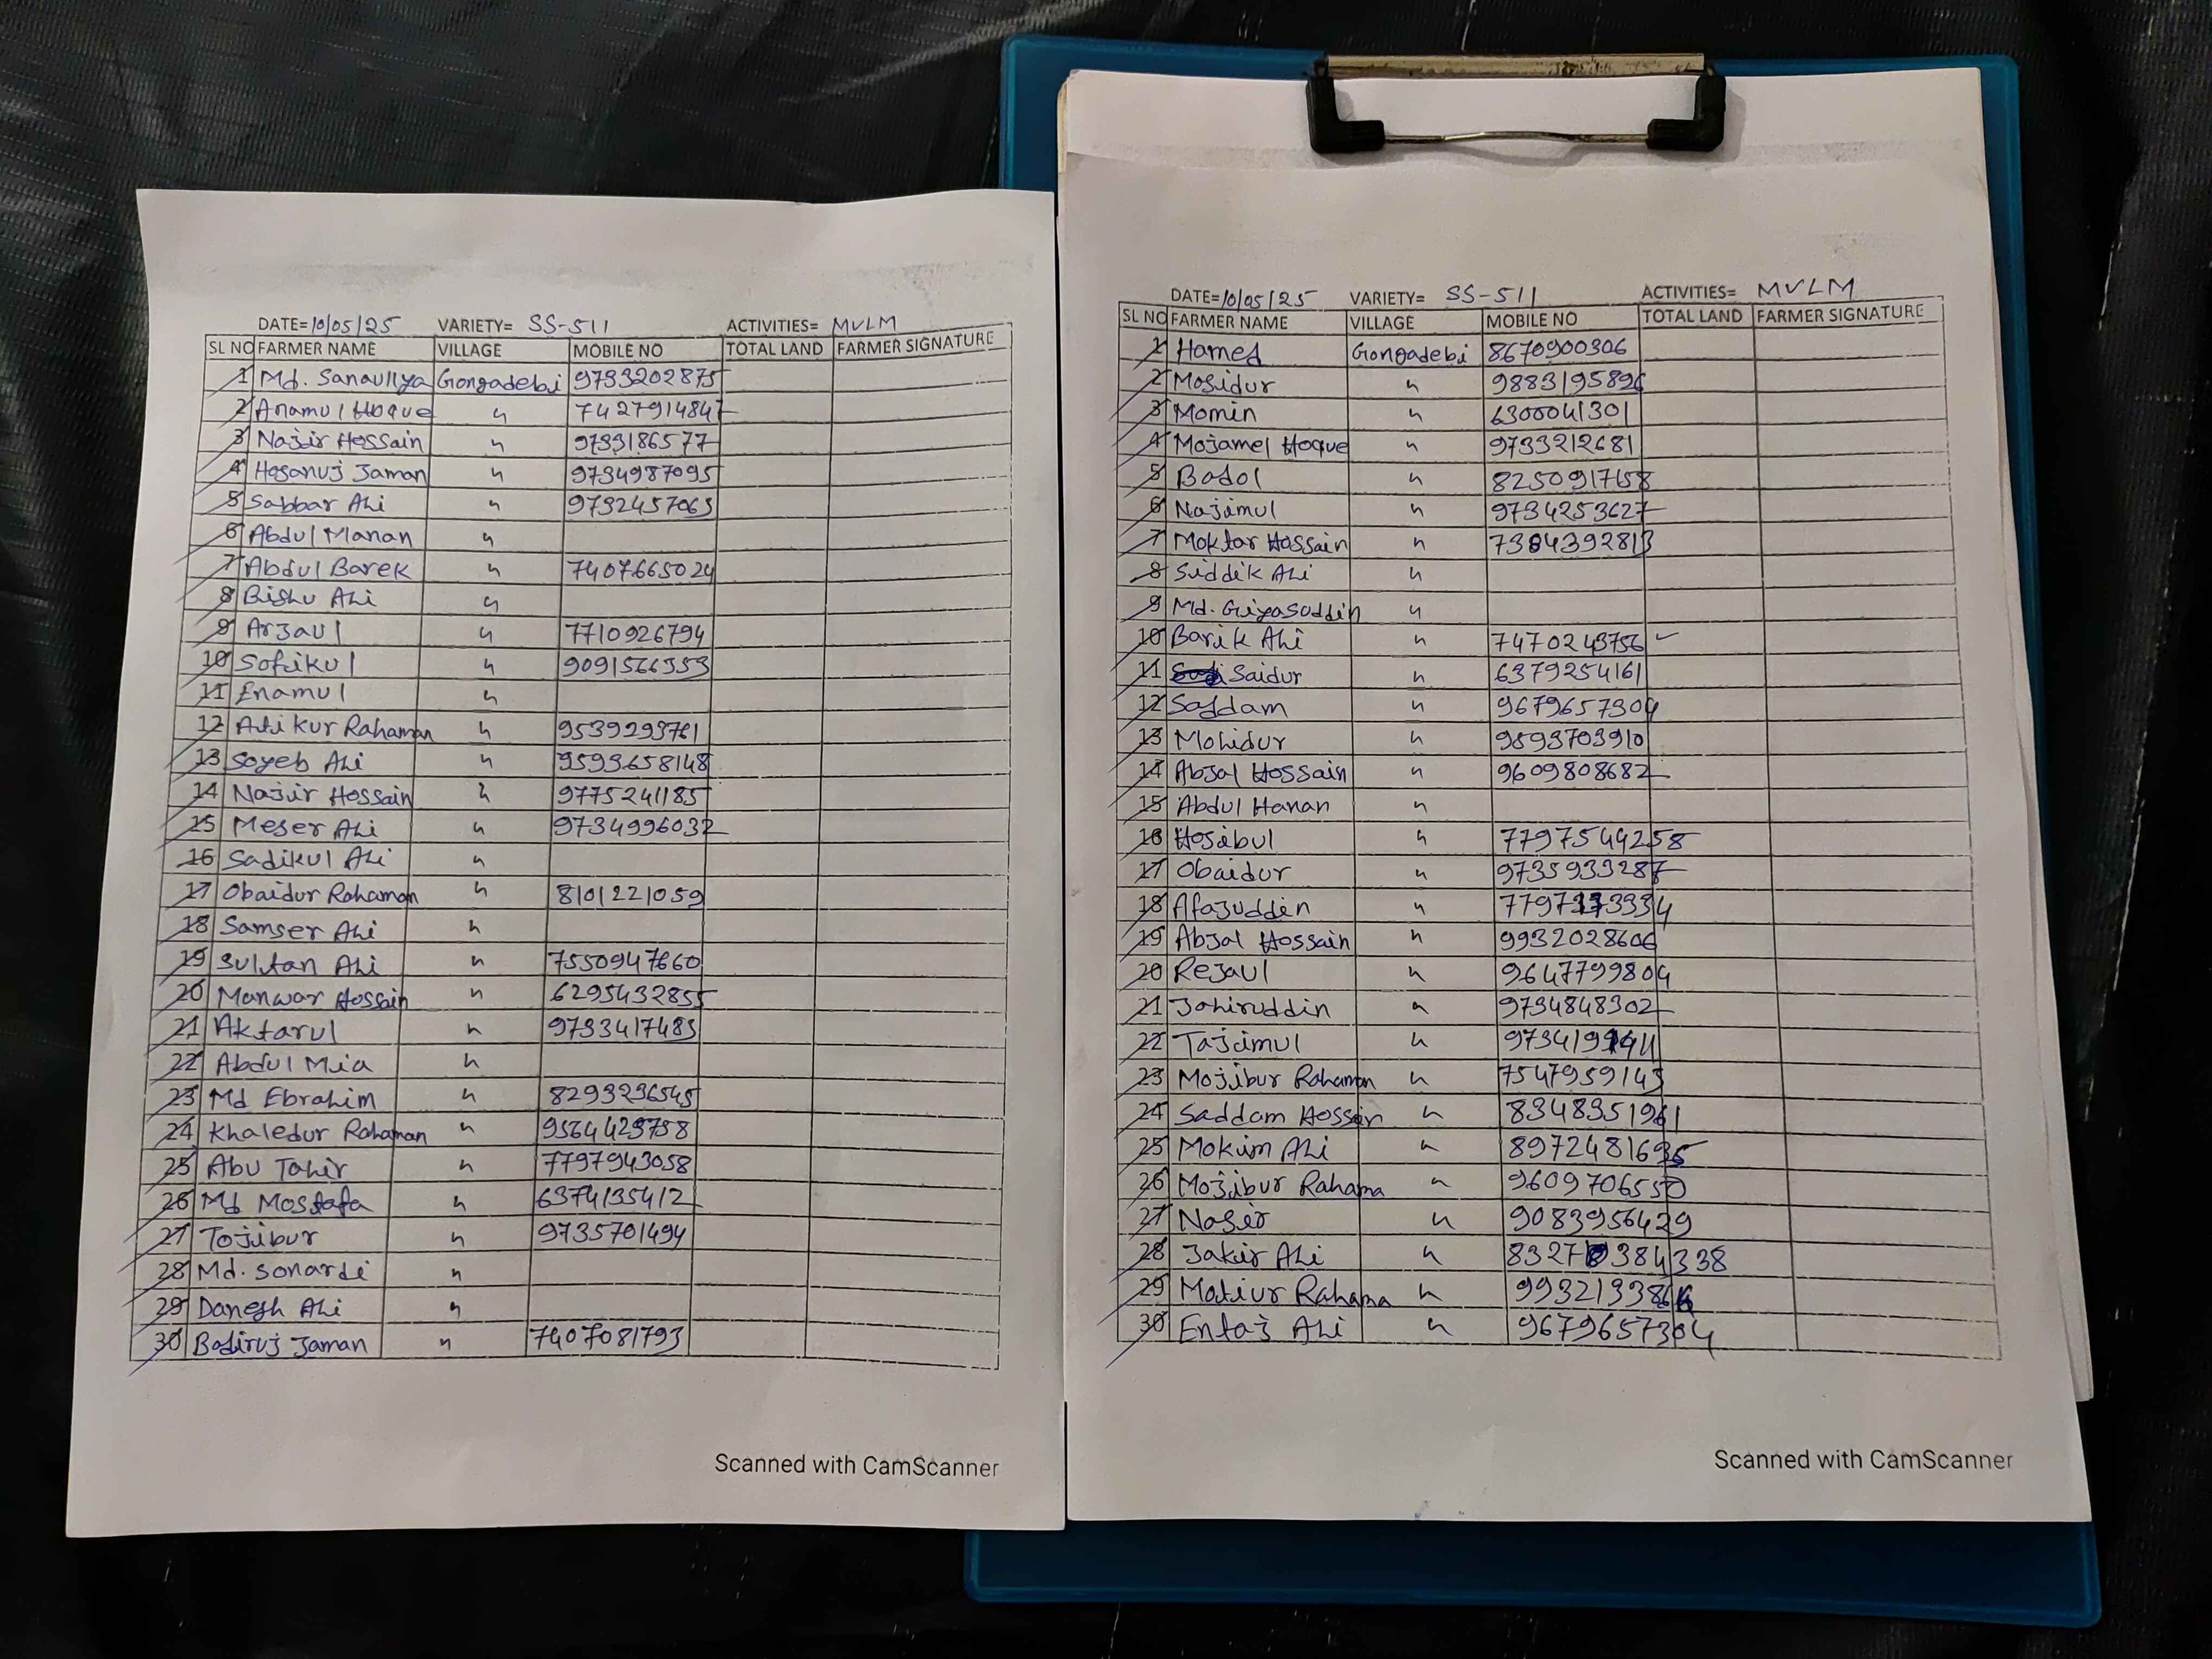 DATE=10/05/25 VARIETY= SS-511 ACTIVITIES= MVLM
SL NO FARMER NAME VILLAGE MOBILE NO TOTAL LAND FARMER SIGNATURE
1 Md. Sanaullya Gongadebi 9733202875
2 Anamul Hoque 〃 7427914847
3 Najir Hossain 〃 9733186577
4 Hosanuj Jaman 〃 9734987095
5 Sabbar Ali 〃 9732457063
6 Abdul Manan 〃
7 Abdul Barek 〃 7407665024
8 Bishu Ali 〃
9 Arjaul 〃 7710926794
10 Sofikul 〃 9091566353
11 Enamul 〃
12 Atikur Rahaman 〃 9539293761
13 Soyeb Ali 〃 9593658148
14 Najir Hossain 〃 9775241185
15 Meser Ali 〃 9734996032
16 Sadikul Ali 〃
17 Obaidur Rahaman 〃 8101221059
18 Samser Ali 〃
19 Sultan Ali 〃 7550947660
20 Manwar Hossain 〃 6295432855
21 Aktarul 〃 9733417483
22 Abdul Mia 〃
23 Md Ebrahim 〃 8293236545
24 Khaledur Rahaman 〃 9564429758
25 Abu Tahir 〃 7797943058
26 Md Mostafa 〃 6374135412
27 Tojibur 〃 9735701494
28 Md. Sonardi 〃
29 Danesh Ali 〃
30 Badiruj Jaman 〃 7407081793
Scanned with CamScanner
DATE=10/05/25 VARIETY= SS-511 ACTIVITIES= MVLM
SL NO FARMER NAME VILLAGE MOBILE NO TOTAL LAND FARMER SIGNATURE
1 Hamed Gongadebi 8670900306
2 Mosidur 〃 9883195896
3 Momin 〃 6300041301
4 Mojamel Hoque 〃 9733212681
5 Badol 〃 8250917658
6 Najimul 〃 9734253627
7 Moktar Hossain 〃 7384392813
8 Siddik Ali 〃
9 Md. Giyasuddin 〃
10 Barik Ali 〃 7470243756 ✓
11 Saidur 〃 6379254161
12 Saddam 〃 9679657304
13 Mohidur 〃 9593703910
14 Abjal Hossain 〃 9609808682
15 Abdul Hanan 〃
16 Hosibul 〃 7797544258
17 Obaidur 〃 9735933287
18 Afajuddin 〃
19 Abjal Hossain 〃 9932028606
20 Rejaul 〃 9647799804
21 Jahiruddin 〃 9734848302
22 Tajimul 〃
23 Mojibur Rahaman 〃 7547959143
24 Saddam Hossain 〃 8348351961
25 Mokim Ali 〃
26 Mojibur Rahama 〃 9609706550
27 Nasir 〃 9083956429
28 Jakir Ali 〃
29 Matiur Rahama 〃
30 Entaj Ali 〃 9679657304
Scanned with CamScanner